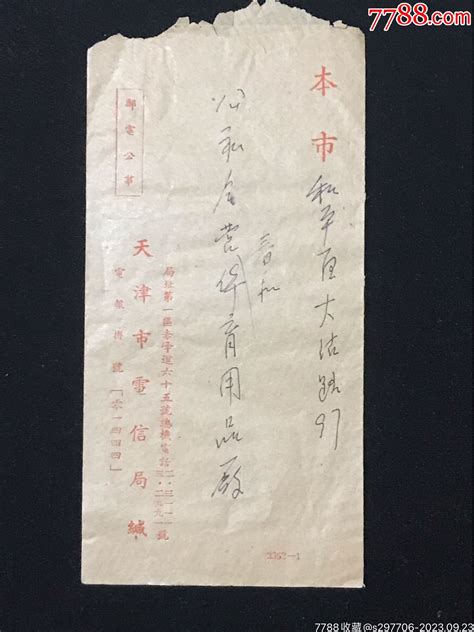 7788.com
本市 和平区大沽路97
春和
公私合营体育用品厂
局址第一區赤峯道六十五號總機電話二·三一一一 三·二九九一號
天津市電信局緘
電報掛號「零一四四」
郵電公事
2352-1
7788收藏@s297706-2023.09.23